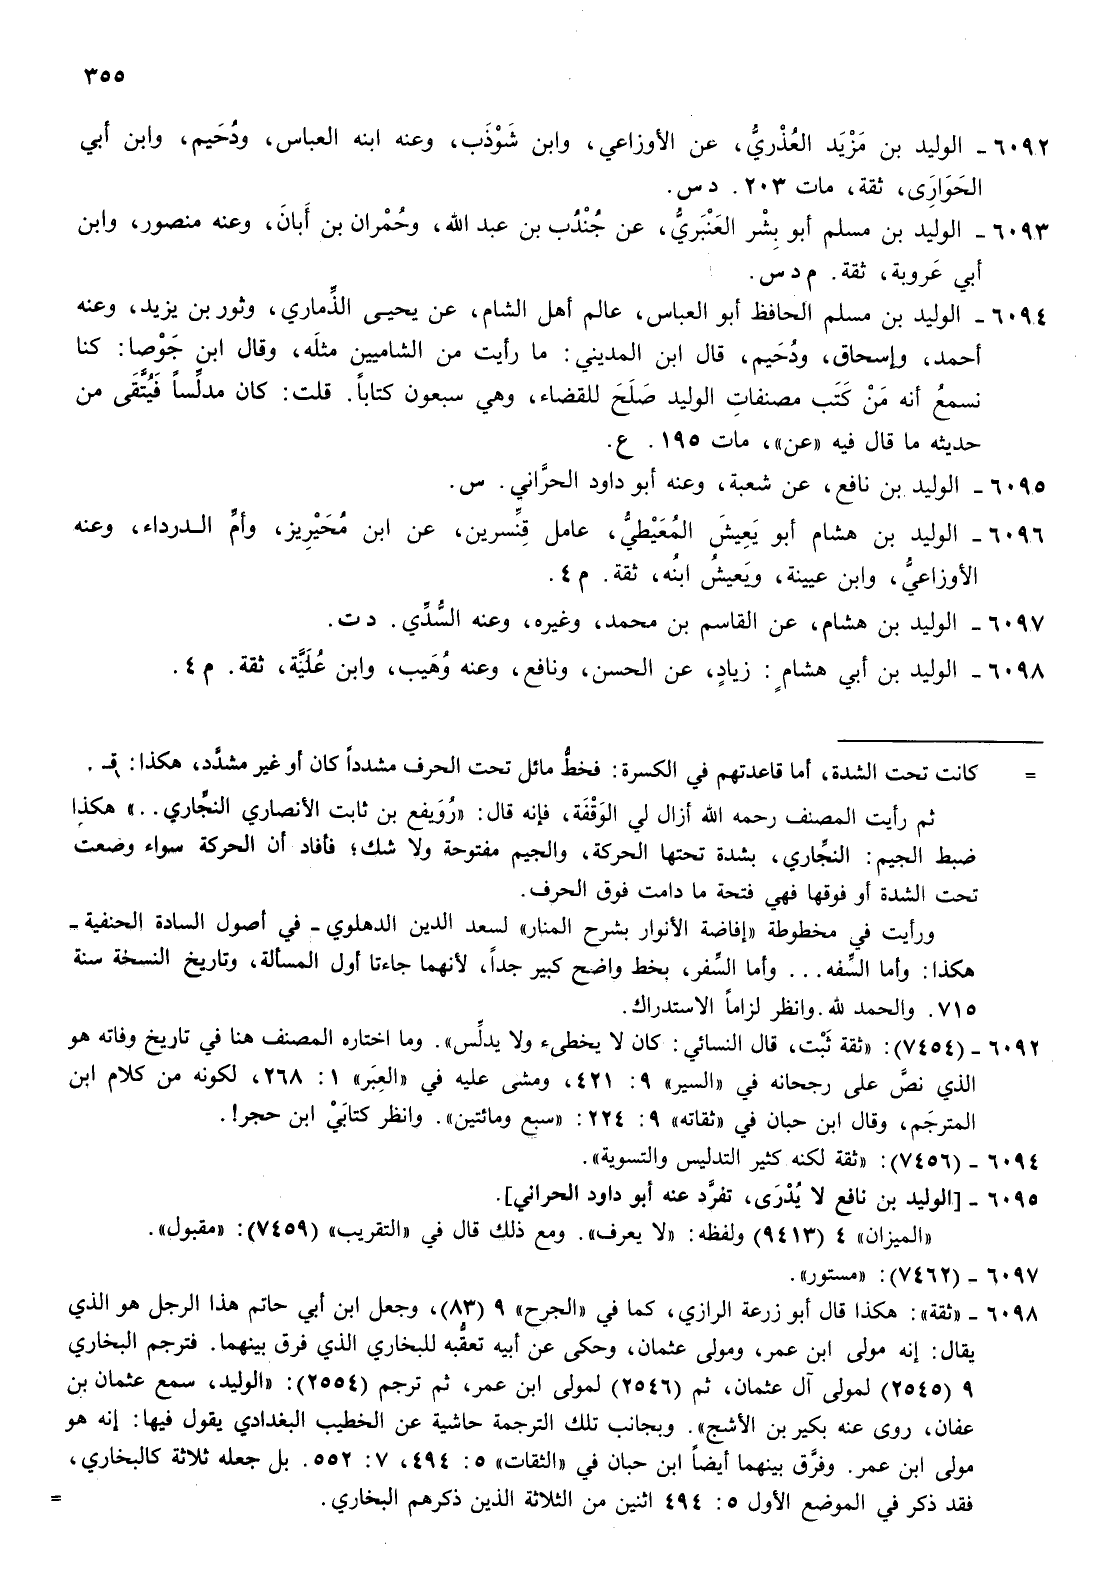 ٣٥٥
٦٠٩٢ - الوليد بن مَزْيَد العُذْريُّ، عن الأوزاعي، وابن شَوْذَب، وعنه ابنه العباس، ودُحَيم، وابن أبي
الحَوَارَى، ثقة، مات ٢٠٣. د س.
٦٠٩٣ - الوليد بن مسلم أبو بِشْر العَنْبَريُّ، عن جُنْدُب بن عبد الله، وحُمْران بن أَبانَ، وعنه منصور، وابن
أبي عَروبة، ثقة. م د س.
٦٠٩٤ - الوليد بن مسلم الحافظ أبو العباس، عالم أهل الشام، عن يحيى الذِّماري، وثور بن يزيد، وعنه
أحمد، وإسحاق، ودُحَيم، قال ابن المديني: ما رأيت من الشاميين مثلَه، وقال ابن جَوْصا: كنا
نسمعُ أنه مَنْ كَتَب مصنفاتِ الوليد صَلَحَ للقضاء، وهي سبعون كتاباً. قلت: كان مدلِّساً فَيُتَّقَى من
حديثه ما قال فيه «عن»، مات ١٩٥. ع.
٦٠٩٥ - الوليد بن نافع، عن شعبة، وعنه أبو داود الحرَّاني. س.
٦٠٩٦ - الوليد بن هشام أبو يَعِيشَ المُعَيْطيُّ، عامل قِنَّسرين، عن ابن مُحَيْرِيز، وأمِّ الـدرداء، وعنه
الأوزاعيُّ، وابن عيينة، ويَعيشُ ابنُه، ثقة. م ٤.
٦٠٩٧ - الوليد بن هشام، عن القاسم بن محمد، وغيره، وعنه السُّدِّي. د ت.
٦٠٩٨ - الوليد بن أبي هشامٍ: زيادٍ، عن الحسن، ونافع، وعنه وُهَيب، وابن عُلَيَّة، ثقة. م ٤.
= كانت تحت الشدة، أما قاعدتهم في الكسرة: فخطٌّ مائل تحت الحرف مشدداً كان أو غير مشدَّد، هكذا: قِـ .
ثم رأيت المصنف رحمه الله أزال لي الوَقْفَة، فإنه قال: «رُوَيفع بن ثابت الأنصاري النجِّاري..» هكذا
ضبط الجيم: النجِّاري، بشدة تحتها الحركة، والجيم مفتوحة ولا شك؛ فأفاد أن الحركة سواء وضعت
تحت الشدة أو فوقها فهي فتحة ما دامت فوق الحرف.
ورأيت في مخطوطة «إفاضة الأنوار بشرح المنار» لسعد الدين الدهلوي - في أصول السادة الحنفية -
هكذا: وأما السِّفه... وأما السِّفر، بخط واضح كبير جداً، لأنهما جاءتا أول المسألة، وتاريخ النسخة سنة
٧١٥. والحمد لله. وانظر لزاماً الاستدراك.
٦٠٩٢ - (٧٤٥٤): «ثقة ثَبْت، قال النسائي: كان لا يخطىء ولا يدلِّس». وما اختاره المصنف هنا في تاريخ وفاته هو
الذي نصَّ على رجحانه في «السير» ٩: ٤٢١، ومشى عليه في «العِبَر» ١: ٢٦٨، لكونه من كلام ابن
المترجَم، وقال ابن حبان في «ثقاته» ٩: ٢٢٤: «سبع ومائتين». وانظر كتابَيْ ابن حجر!.
٦٠٩٤ - (٧٤٥٦): «ثقة لكنه كثير التدليس والتسوية».
٦٠٩٥ - [الوليد بن نافع لا يُدْرَى، تفرَّد عنه أبو داود الحراني].
«الميزان» ٤ (٩٤١٣) ولفظه: «لا يعرف». ومع ذلك قال في «التقريب» (٧٤٥٩): «مقبول».
٦٠٩٧ - (٧٤٦٢): «مستور».
٦٠٩٨ - «ثقة»: هكذا قال أبو زرعة الرازي، كما في «الجرح» ٩ (٨٣)، وجعل ابن أبي حاتم هذا الرجل هو الذي
يقال: إنه مولى ابن عمر، ومولى عثمان، وحكى عن أبيه تعقُّبه للبخاري الذي فرق بينهما. فترجم البخاري
٩ (٢٥٤٥) لمولى آل عثمان، ثم (٢٥٤٦) لمولى ابن عمر، ثم ترجم (٢٥٥٤): «الوليد، سمع عثمان بن
عفان، روى عنه بكير بن الأشج». وبجانب تلك الترجمة حاشية عن الخطيب البغدادي يقول فيها: إنه هو
مولى ابن عمر. وفرَّق بينهما أيضاً ابن حبان في «الثقات» ٥: ٤٩٤، ٧: ٥٥٢. بل جعله ثلاثة كالبخاري،
فقد ذكر في الموضع الأول ٥: ٤٩٤ اثنين من الثلاثة الذين ذكرهم البخاري. =